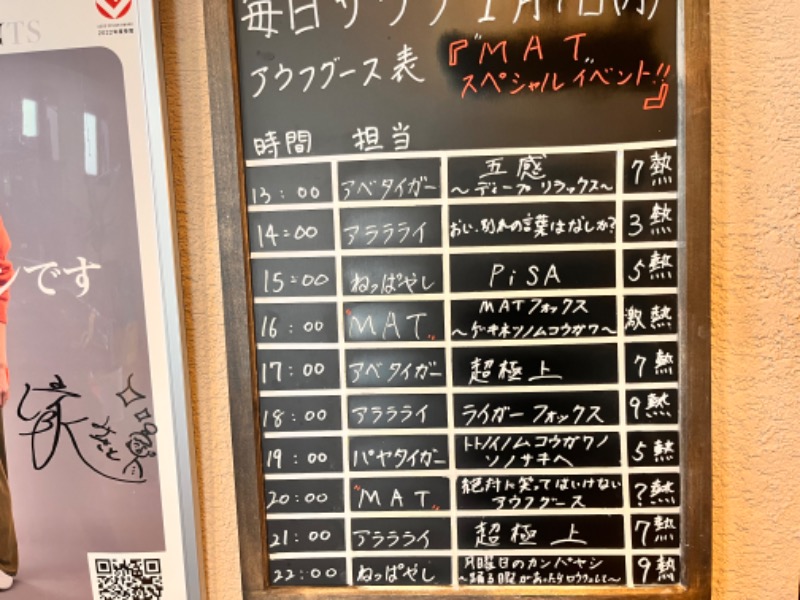 TS
2022年春夏
です
毎日サウナ 1月
アウフグース表 『"MAT"
スペシャルイベント!!』
時間 担当
13:00 アベタイガー 五感 7熱
～ディープリラックス～
14:00 アララライ おじ、別れの言葉はなしか? 3熱
15:00 ねっぱやし PiSA 5熱
16:00 "MAT" MATフォックス 激熱
～ゲキネツノムコウガワ～
17:00 アベタイガー 超極上 7熱
18:00 アララライ ライガーフォックス 9熱
19:00 パヤタイガー トトノイノムコウガワノ 5熱
ソノサキヘ
20:00 "MAT" 絶対に笑ってはいけない ?熱
アウフグース
21:00 アララライ 超極上 7熱
22:00 ねっぱやし 月曜日のカンパヤシ 9熱
～踊る暇があったらロウリュして～